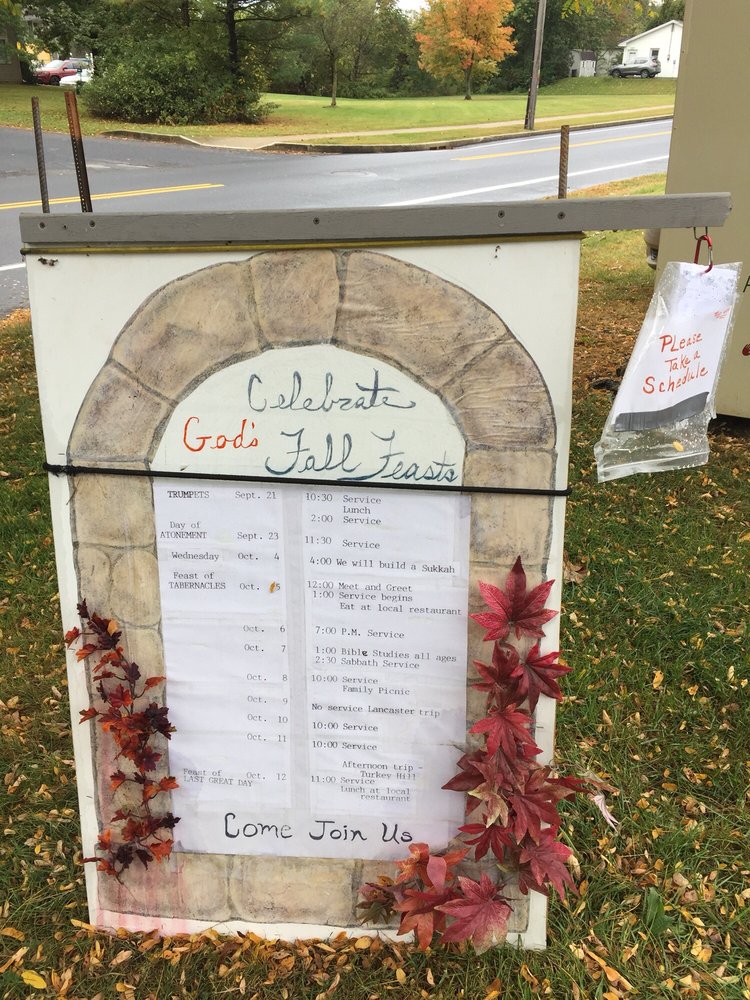 Celebrate
God's Fall Feasts
TRUMPETS Sept. 21 10:30 Service
Lunch
2:00 Service
Day of
ATONEMENT Sept. 23 11:30 Service
Wednesday Oct. 4 4:00 We will build a Sukkah
Feast of
TABERNACLES Oct. 5 12:00 Meet and Greet
1:00 Service begins
Eat at local restaurant
Oct. 6 7:00 P.M. Service
Oct. 7 1:00 Bible Studies all ages
2:30 Sabbath Service
Oct. 8 10:00 Service
Family Picnic
Oct. 9 No service Lancaster trip
Oct. 10 10:00 Service
Oct. 11 10:00 Service
Afternoon trip -
Turkey Hill
Feast of
LAST GREAT DAY Oct. 12 11:00 Service
Lunch at local
restaurant
Come Join Us
PLease
Take a
Schedule